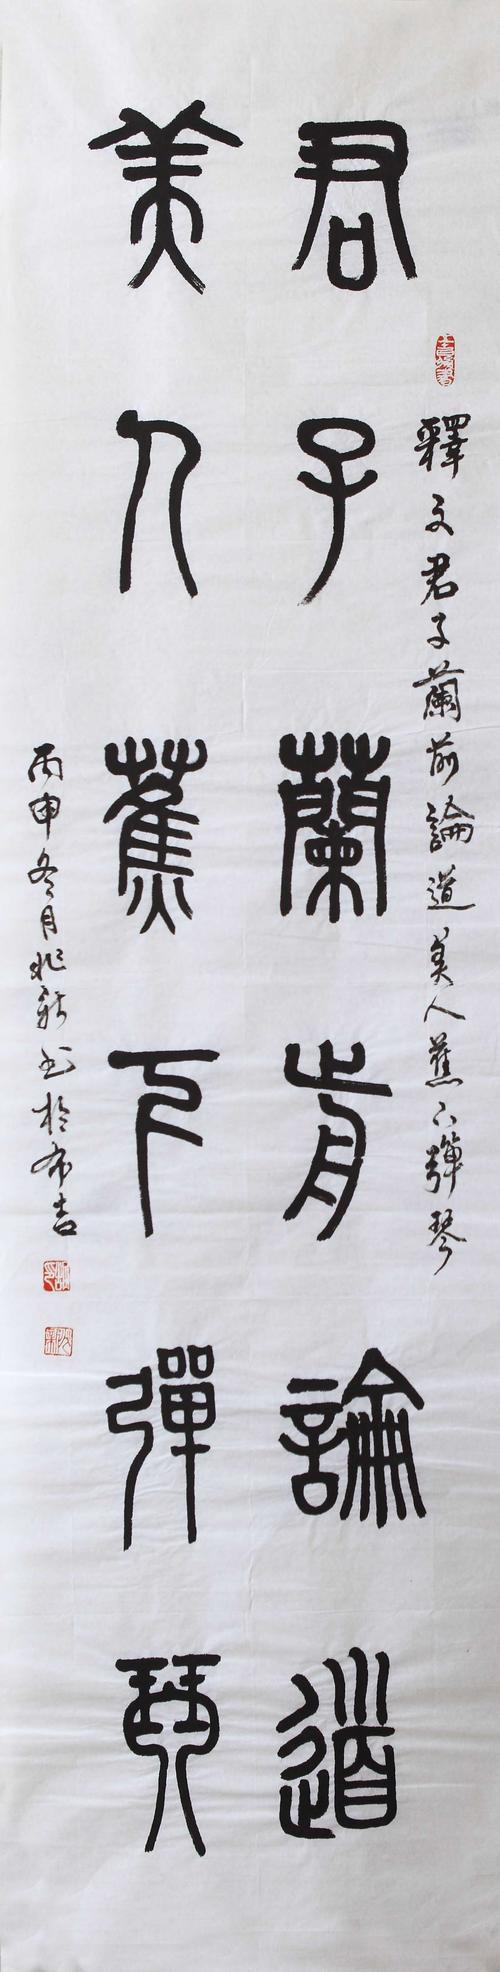 釋文君子蘭前論道美人蕉下彈琴
君子蘭前論道
美人蕉下彈琴
丙申冬月兆新书於布吉